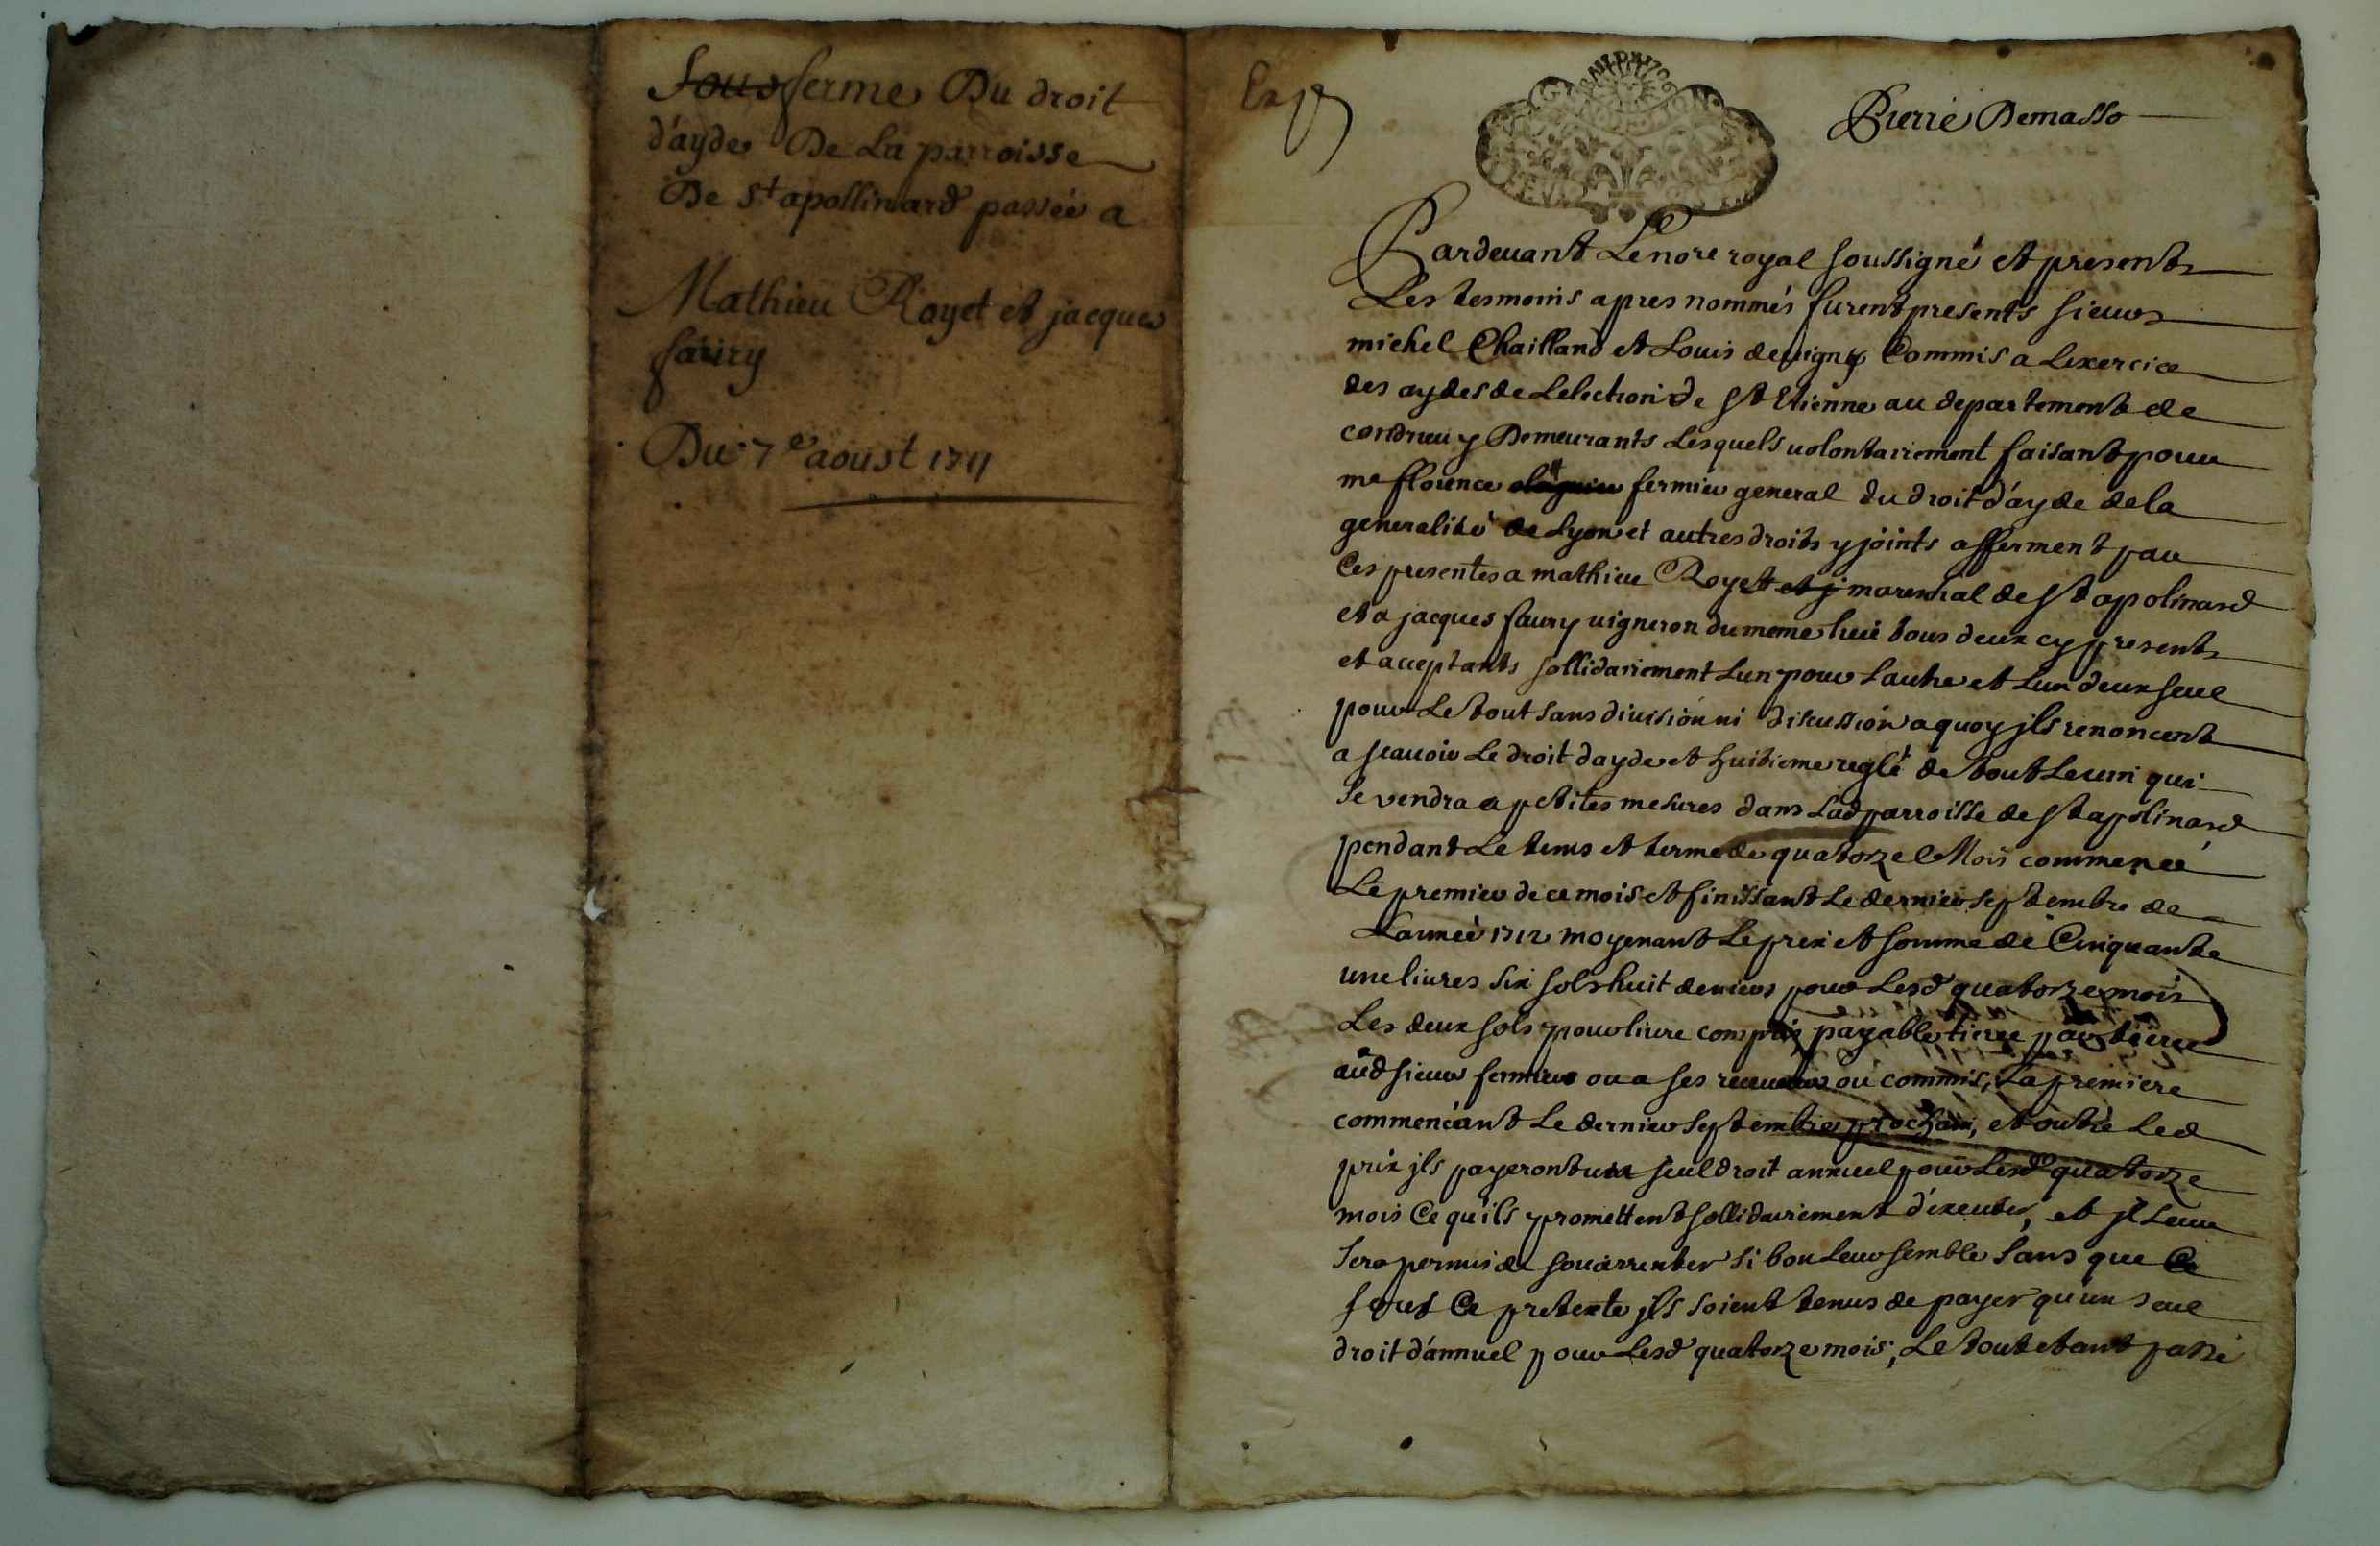 Sousferme Du droit
d'ayde De La parroisse
De St apollinard passée a
Mathieu Royet et jacques
faury
Du 7e aoust 1711
Exp
Pierre Demasso
Pardevant Le nore royal soussigné et presents
Les tesmoins apres nommés furent presents sieurs
michel Chailland et Louis devigny Commis a Lexercice
des aydes de Lelection de St Etienne au departement de
condrieu y Demeurants Lesquels volontairement faisant pour
me florence fermier general du droit d'ayde de la
generalité de Lyon et autres droits y joints afferment par
Ces presentes a mathieu Royet et j mareschal de St apolinard
et a jacques faury vigneron du meme lieu tous deux cy presents
et acceptants sollidairement Lun pour Lautre et Lun deux seul
pour Le tout sans division ni discussion a quoy jls renoncent
a scavoir Le droit dayde et huitieme reglé de tout Le vin qui
se vendra a petites mesures dans Lad parroisse de St apolinard
pendant Le tems et terme de quatorze Mois commencé
Le premier de ce mois et finissant Le dernier septembre de
Lannée 1712 moyenant Le prix et somme de Cinquante
une livres six sols huit deniers pour Lesd quatorze mois
Les deux sols pour livre compris payable tierce par tierce
aud sieur fermier ou a ses receveurs ou commis, La premiere
commencant Le dernier septembre prochain, et outre Led
prix jls payeront un seul droit annuel pour Lesd quatorze
mois Ce qu'ils promettent sollidairement d'executer, et jl Leur
sera permis de sousarrenter si bon Leur semble sans que
sous Ce pretexte jls soient tenus de payer qu'un seul
droit d'annuel pour Lesd quatorze mois; Le tout etant passé